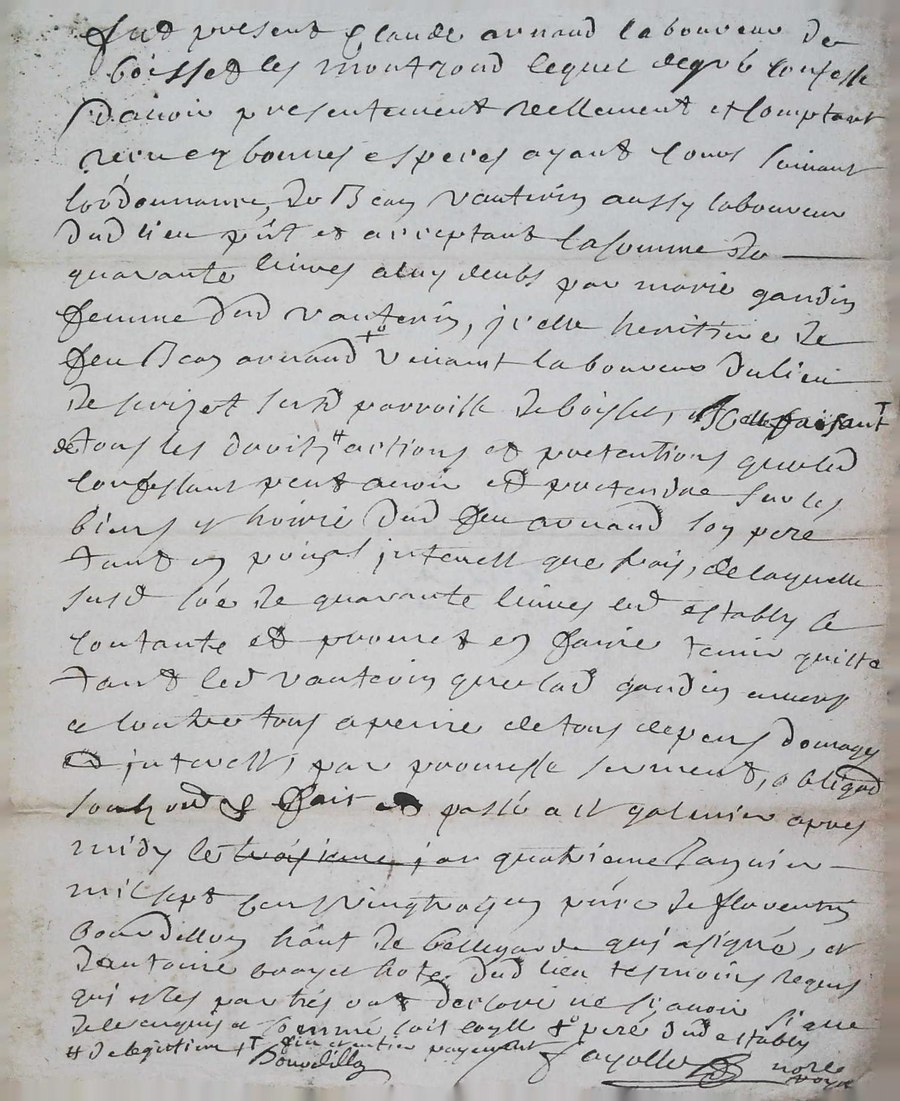 fut present Claude arnaud laboureur de
boisset les montrond lequel de gré confesse
d'avoir presentement reellement et comptant
receu en bonnes especes ayant cours suivant
l'ordonnance, de Bean vauterin aussy laboureur
dud lieu pnt et acceptant la somme de
quarante livres a luy deubs par marie gaudin
femme dud vauterin, jcelle heritiere de
feu Bean arnaud vivant laboureur du lieu
de susd parroisse de boisset, faisant
de tous les droits actions et pretentions que led
confessant peut avoir et pretendre sur les
biens et hoirie dud feu arnaud son pere
tant en prinpal jnterest que frais, de laquelle
susd de quarante livres led establÿ se
contante et promet en faire tenir quitte
tant led vauterin que lad gaudin envers
et contre tous a peine de tous depens domages
et jnterests, par promesse serment, obligaon
fait et passé a st galmier apres
midy le troisieme jour quatrieme Janvier
mil sept cens vingt pnce de florentin
Bourdillon de bellegarde qui a signé, et
d'antoine boyer hote dud lieu tesmoins requis
qui et les parties ont declaré ne sçavoir signer
de ce enquis et sommé soit pere dud establÿ
fin et entier payement
Bourdillon fayolle nore
royal